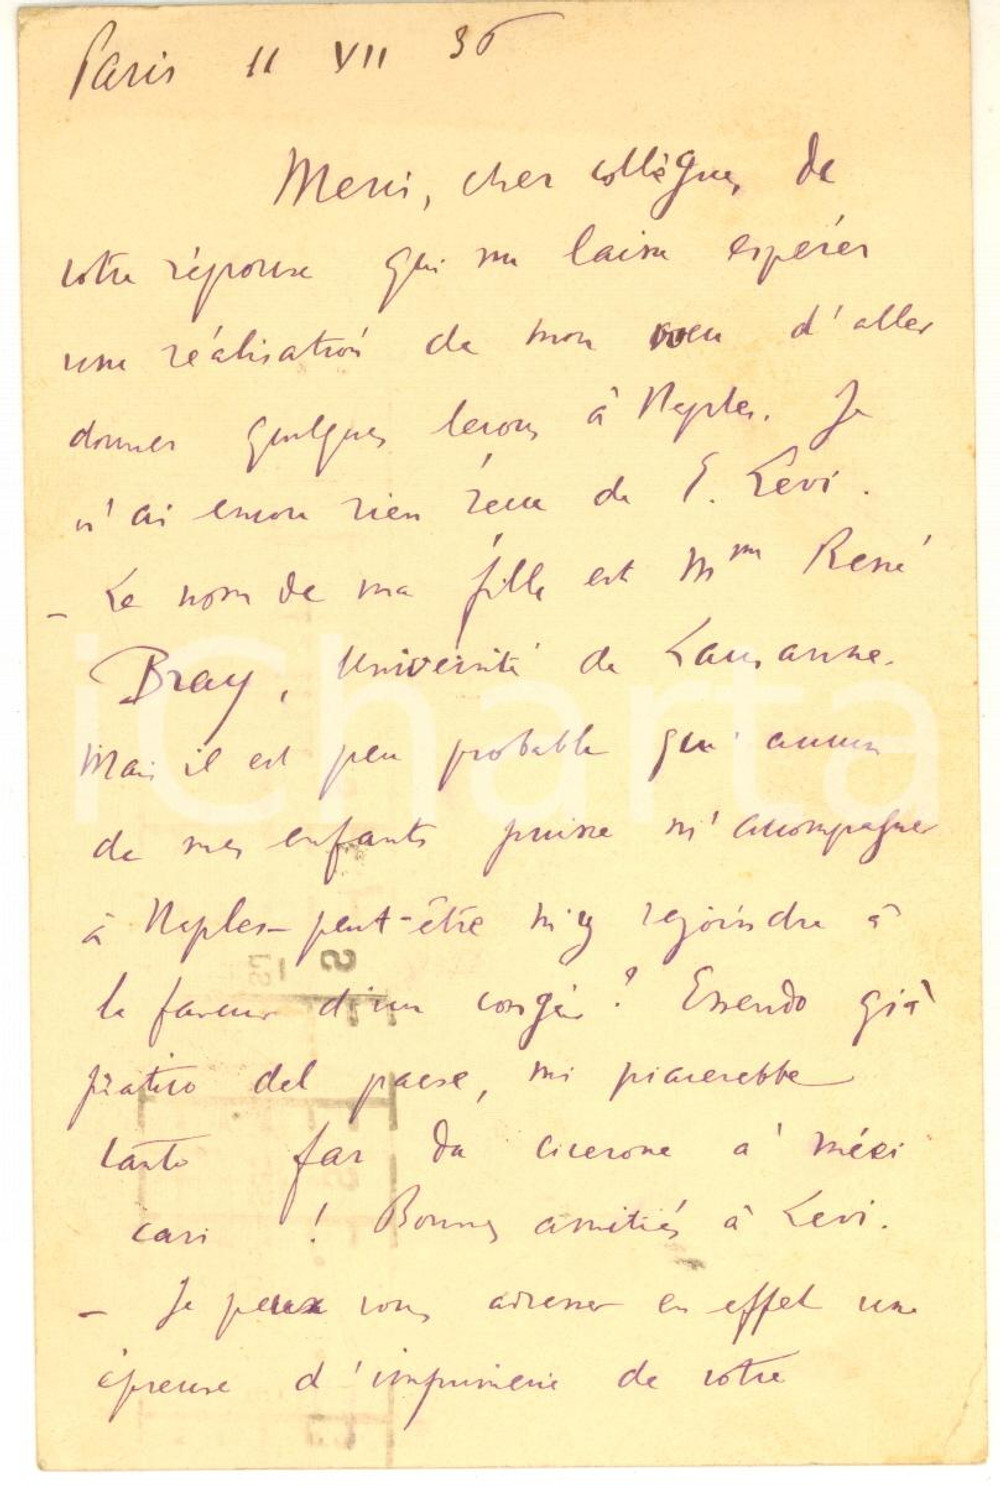 Paris 11 VII 36
Merci, cher collègue, de
votre réponse qui me laisse espérer
une réalisation de mon voeu d'aller
donner quelques leçons à Naples. Je
n'ai encore rien reçu de E. Levi.
- Le nom de ma fille est Mme René
Bray, Université de Lausanne.
Mais il est peu probable qu'aucun
de mes enfants puisse m'accompagner
à Naples - peut-être m'y rejoindre à
la faveur d'un congé? Essendo già
pratico del paese, mi piacerebbe
tanto far da cicerone a' miei
cari! Bonnes amitiés à Levi.
- Je peux vous adresser en effet une
épreuve d'imprimerie de votre
iCharta